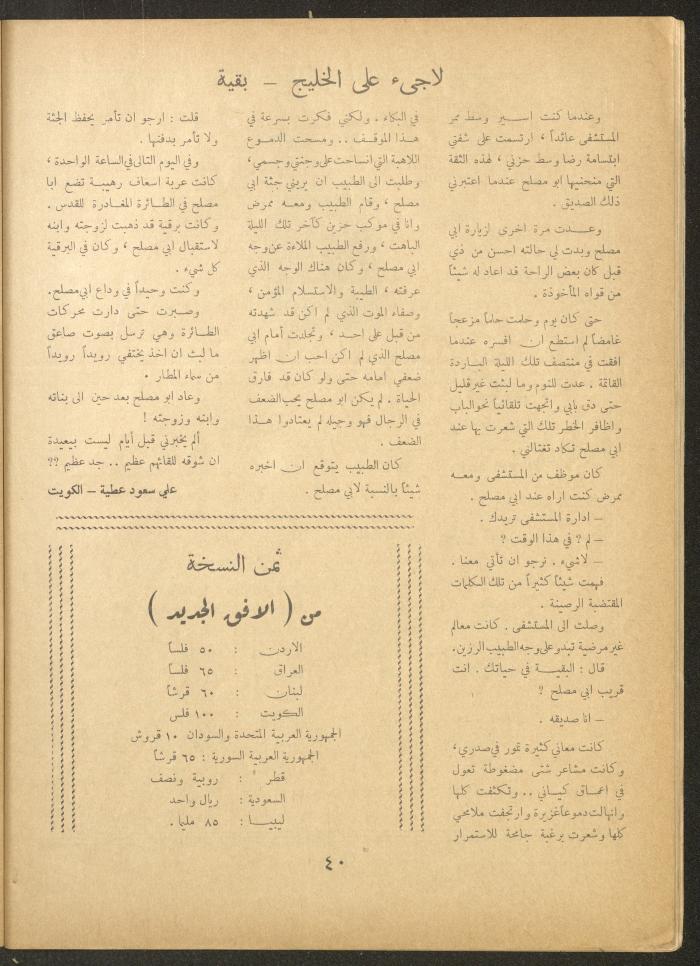 لاجىء على الخليج – بقية
وعندما كنت اسير وسط ممر
المستشفى عائداً ، ارتسمت على شفتي
ابتسامة رضا وسط حزني ، لهذه الثقة
التي منحنيها ابو مصلح عندما اعتبرني
ذلك الصديق .
وعدت مرة اخرى لزيارة ابي
مصلح وبدت لي حالته احسن من ذي
قبل كان بعض الراحة قد اعاد له شيئاً
من قواه المأخوذة .
حتى كان يوم وحلمت حلماً مزعجاً
غامضاً لم استطع ان افسره عندما
افقت في منتصف تلك الليلة الباردة
القاتمة . عدت للنوم وما لبثت غير قليل
حتى دق بابي واتجهت تلقائياً نحو الباب
واظافر الخطر تلك التي شعرت بها عند
ابي مصلح تكاد تغتالني .
كان موظف من المستشفى ومعه
ممرض كنت اراه عند ابي مصلح .
– ادارة المستشفى تريدك .
– لم ? في هذا الوقت ?
– لاشيء . نرجو ان تأتي معنا .
فهمت شيئاً كثيراً من تلك الكلمات
المقتضبة الرصينة .
وصلت الى المستشفى . كانت معالم
غير مرضية تبدو على وجه الطبيب الرزين.
قال : البقية في حياتك . انت
قريب ابي مصلح ?
– انا صديقه .
كانت معاني كثيرة تمور في صدري،
وكانت مشاعر شتى مضغوطة تعول
في اعماق كياني .. وتكثفت كلها
وانهالت دموعاً غزيرة وارتجفت ملامحي
كلها وشعرت برغبة جامحة للاستمرار
في البكاء . ولكني فكرت بسرعة في
هذا الموقف .. ومسحت الدموع
اللاهبة التي انساحت على وجنتي وجسمي،
وطلبت الى الطبيب ان يريني جثة ابي
مصلح ، وقام الطبيب ومعه ممرض
وانا في موكب حزين كآخر تلك الليلة
الباهت ، ورفع الطبيب الملاءة عن وجه
ابي مصلح ، وكان هناك الوجه الذي
عرفته ، الطيبة والاستسلام المؤمن ،
وصفاء الموت الذي لم اكن قد شهدته
من قبل على احد ، وتجلدت أمام ابي
مصلح الذي لم اكن احب ان اظهر
ضعفي امامه حتى ولو كان قد فارق
الحياة . لم يكن ابو مصلح يحب الضعف
في الرجال فهو وجيله لم يعتادوا هذا
الضعف .
كان الطبيب يتوقع ان اخبره
شيئاً بالنسبة لابي مصلح .
قلت : ارجو ان تأمر بحفظ الجثة
ولا تأمر بدفنها .
وفي اليوم التالى في الساعة الواحدة ،
كانت عربة اسعاف رهيبة تضع ابا
مصلح في الطائرة المغادرة للقدس .
وكانت برقية قد ذهبت لزوجته وابنه
لاستقبال ابي مصلح ، وكان في البرقية
كل شيء .
وكنت وحيداً في وداع ابي مصلح.
وصبرت حتى دارت محركات
الطائرة وهي ترسل بصوت صاعق
ما لبث ان اخذ يختفي رويداً رويداً
من سماء المطار .
وعاد ابو مصلح بعد حين الى بناته
وابنه وزوجته !
ألم يخبرني قبل أيام ليست ببعيدة
ان شوقه للقائهم عظيم .. جد عظيم ??
علي سعود عطية – الكويت
ثمن النسخة
من ( الافق الجديد )
الاردن : ٥٠ فلساً
العراق : ٦٥ فلساً
لبنان : ٦٠ قرشاً
الكويت : ١٠٠ فلس
الجمهورية العربية المتحدة والسودان ١٠ قروش
الجمهورية العربية السورية : ٦٥ قرشاً
قطر : روبية ونصف
السعودية : ريال واحد
ليبيا : ٨٥ مليما .
٤٠